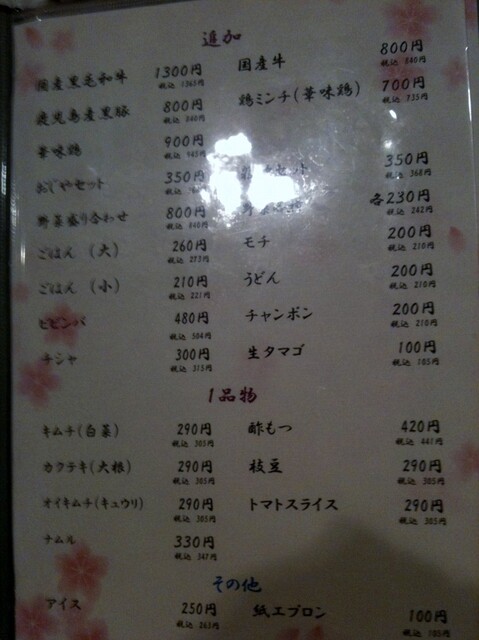 追加
国産黒毛和牛 1300円 税込 1365円
国産牛 800円 税込 840円
鹿児島産黒豚 800円 税込 840円
鶏ミンチ(華味鶏) 700円 税込 735円
華味鶏 900円 税込 945円
おじやセット 350円 税込
セット 350円 税込 368円
野菜盛り合わせ 800円 税込 840円
各230円 税込 242円
ごはん (大) 260円 税込 273円
モチ 200円 税込 210円
ごはん (小) 210円 税込 221円
うどん 200円 税込 210円
ビビンバ 480円 税込 504円
チャンポン 200円 税込 210円
チシャ 300円 税込 315円
生タマゴ 100円 税込 105円
1品物
キムチ(白菜) 290円 税込 305円
酢もつ 420円 税込 441円
カクテキ(大根) 290円 税込 305円
枝豆 290円 税込 305円
オイキムチ(キュウリ) 290円 税込 305円
トマトスライス 290円 税込 305円
ナムル 330円 税込 347円
その他
アイス 250円 税込 263円
紙エプロン 100円 税込 105円